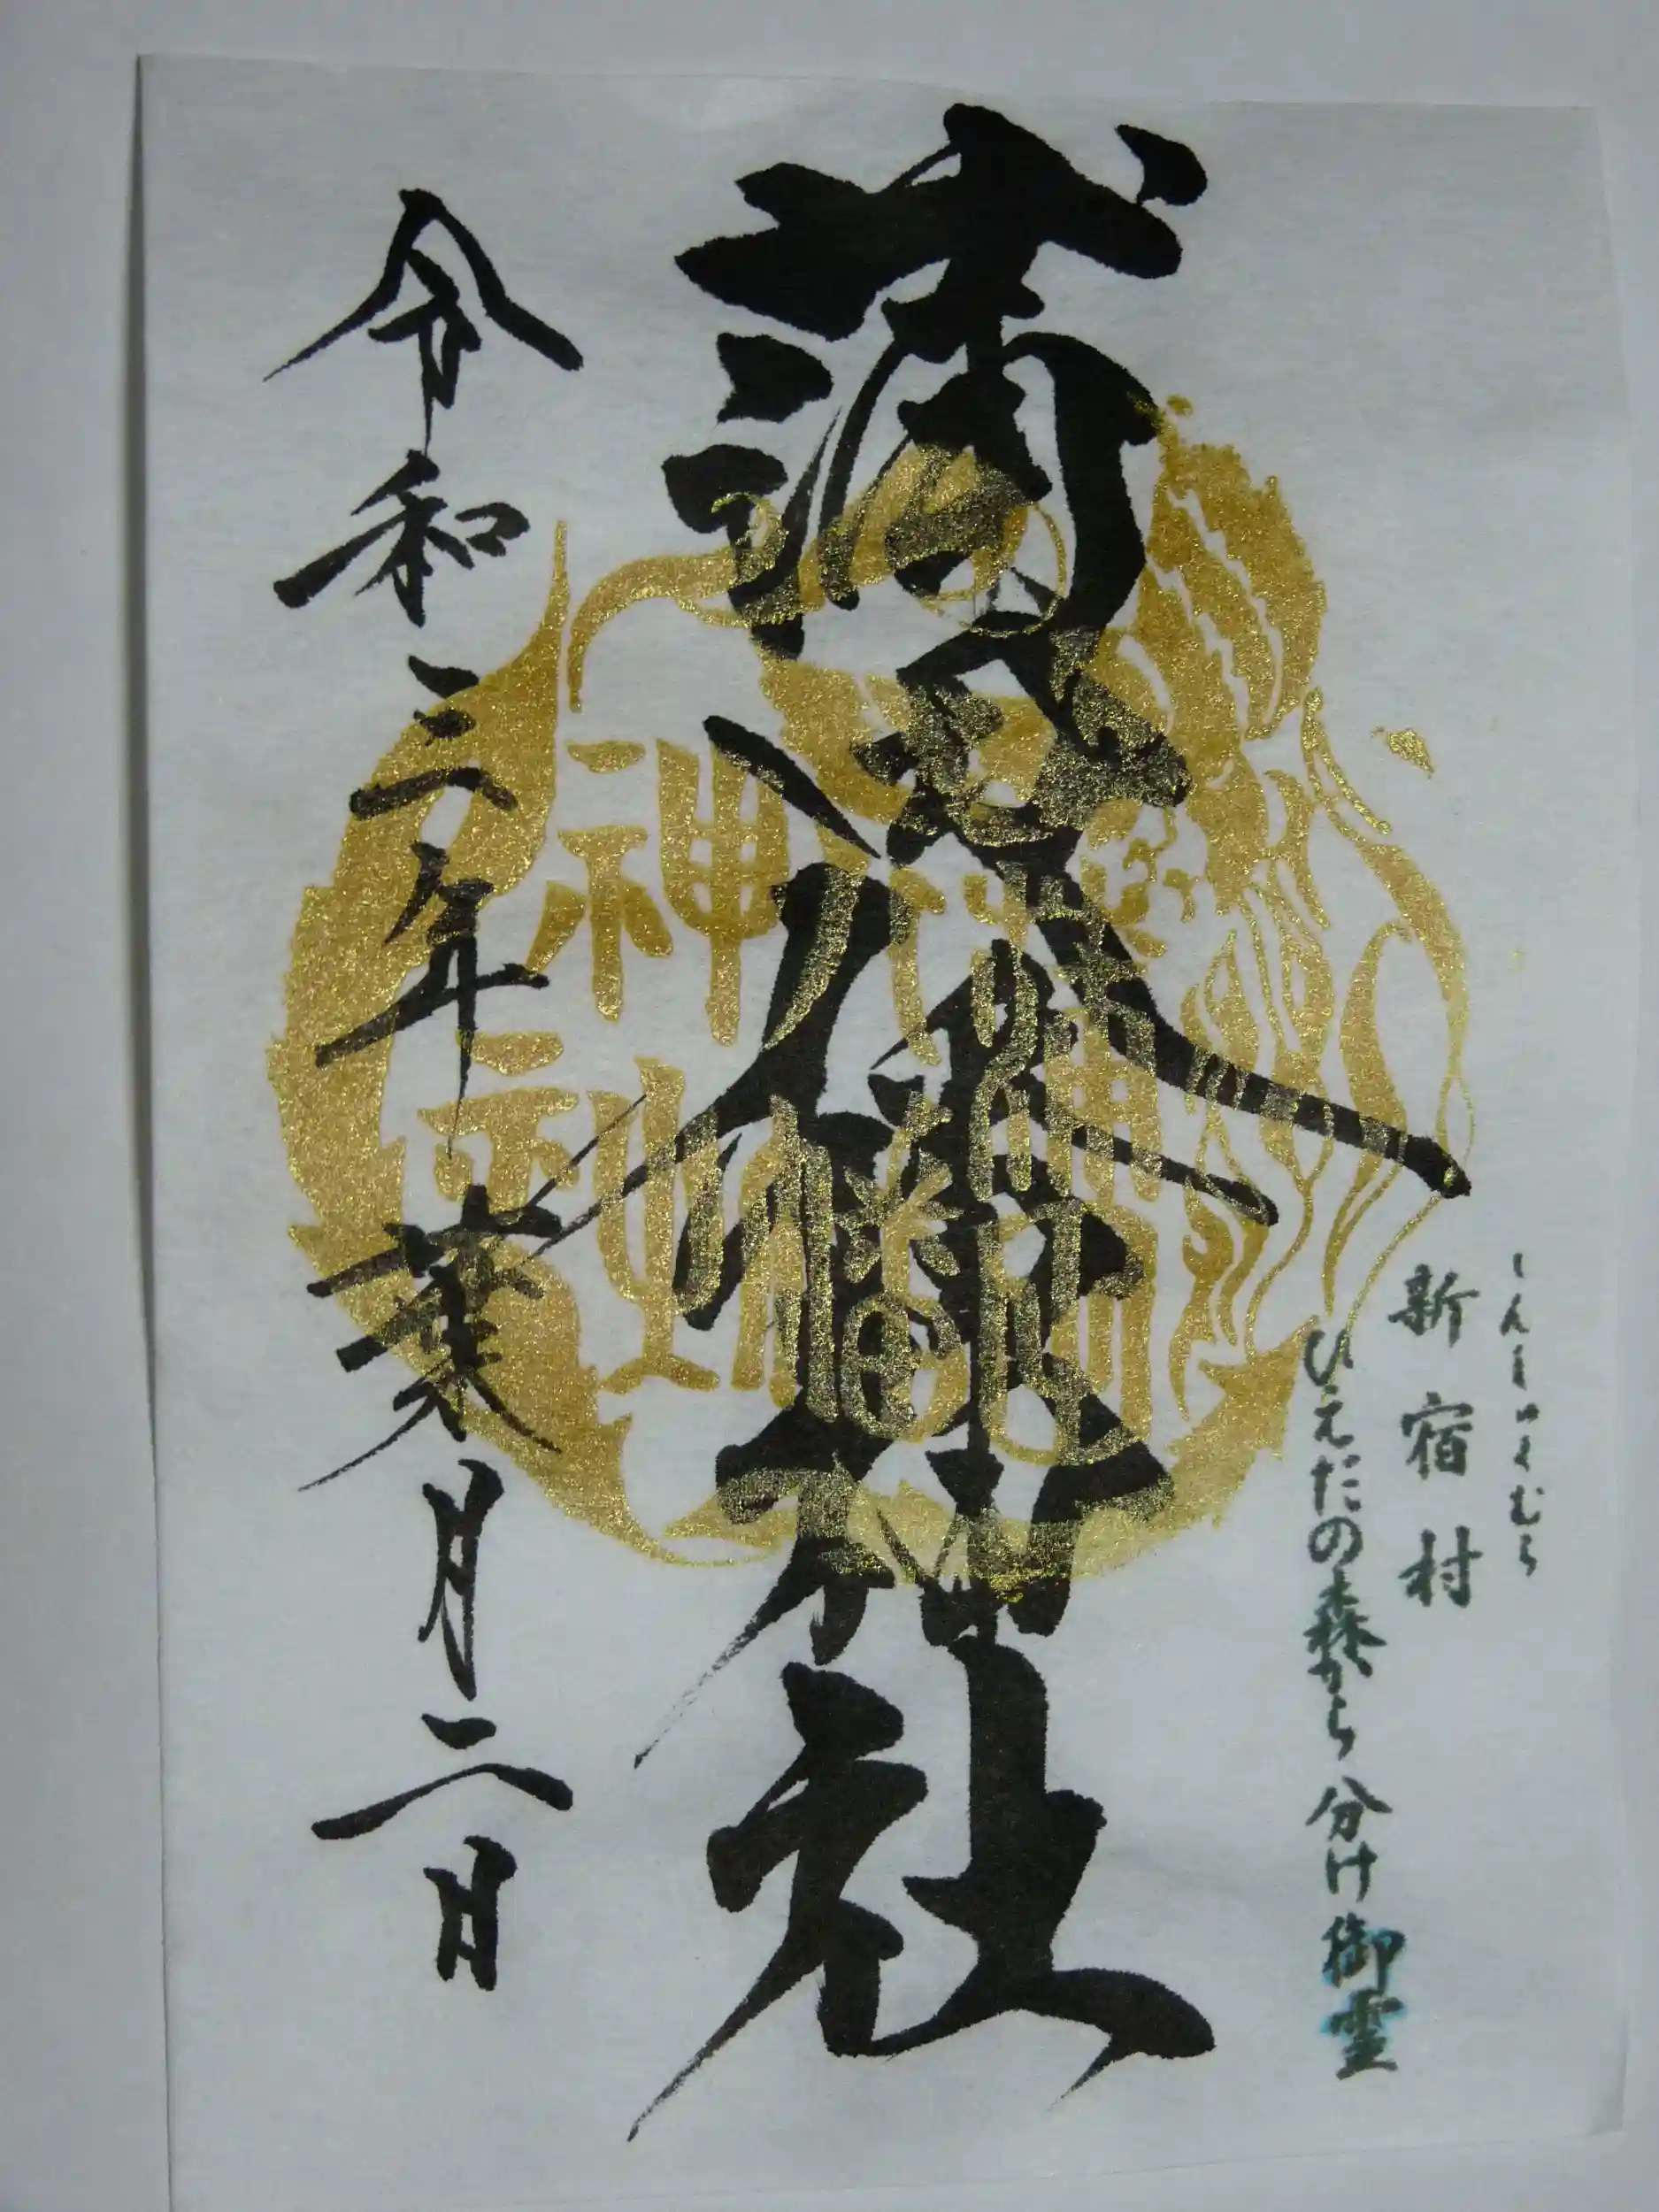 しんしゅくむら
新宿村
ひえだの森から分け御霊
蒲田八幡神社
令和三年葉月二日
神社